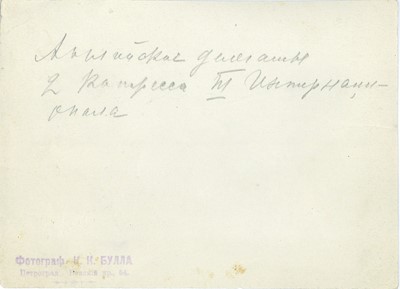 Английские делегаты
2 Конгресса III Интернаци-
онала
Фотограф К. К. БУЛЛА
Петроград, Невский пр. 54.